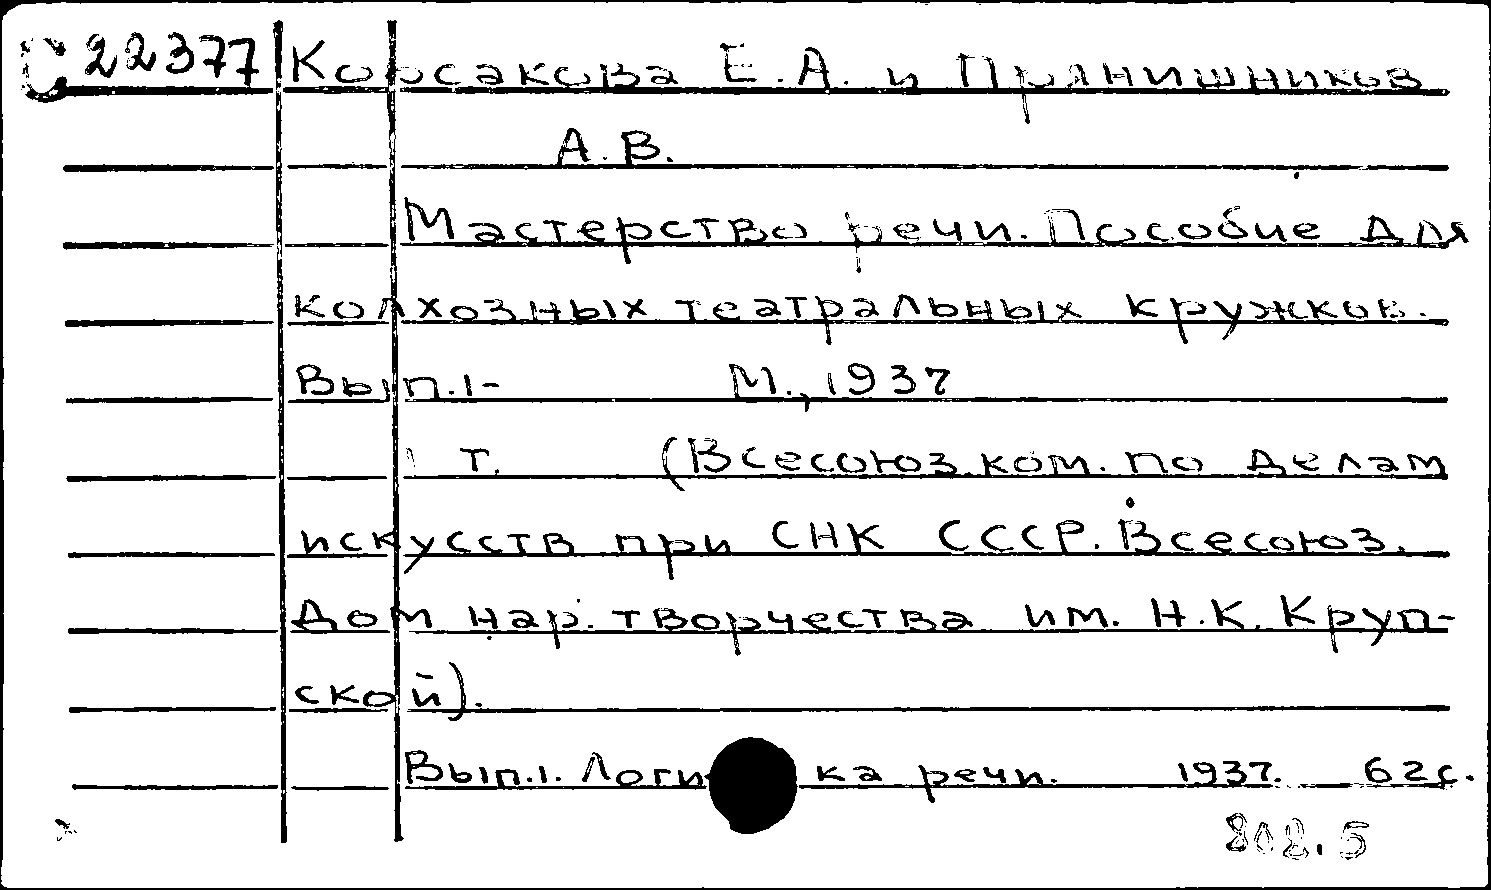 С22377 Корсакова Е.А. и Прянишников
А.В.
Мастерство речи. Пособие для
колхозных театральных кружков.
Вып.1- М., 1937
1 т. (Всесоюз.ком. по делам
искусств при СНК СССР. Всесоюз.
Дом нар. творчества им. Н.К. Круп-
ской).
Вып.1. Логи ка речи. 1937. 62с.
808.5